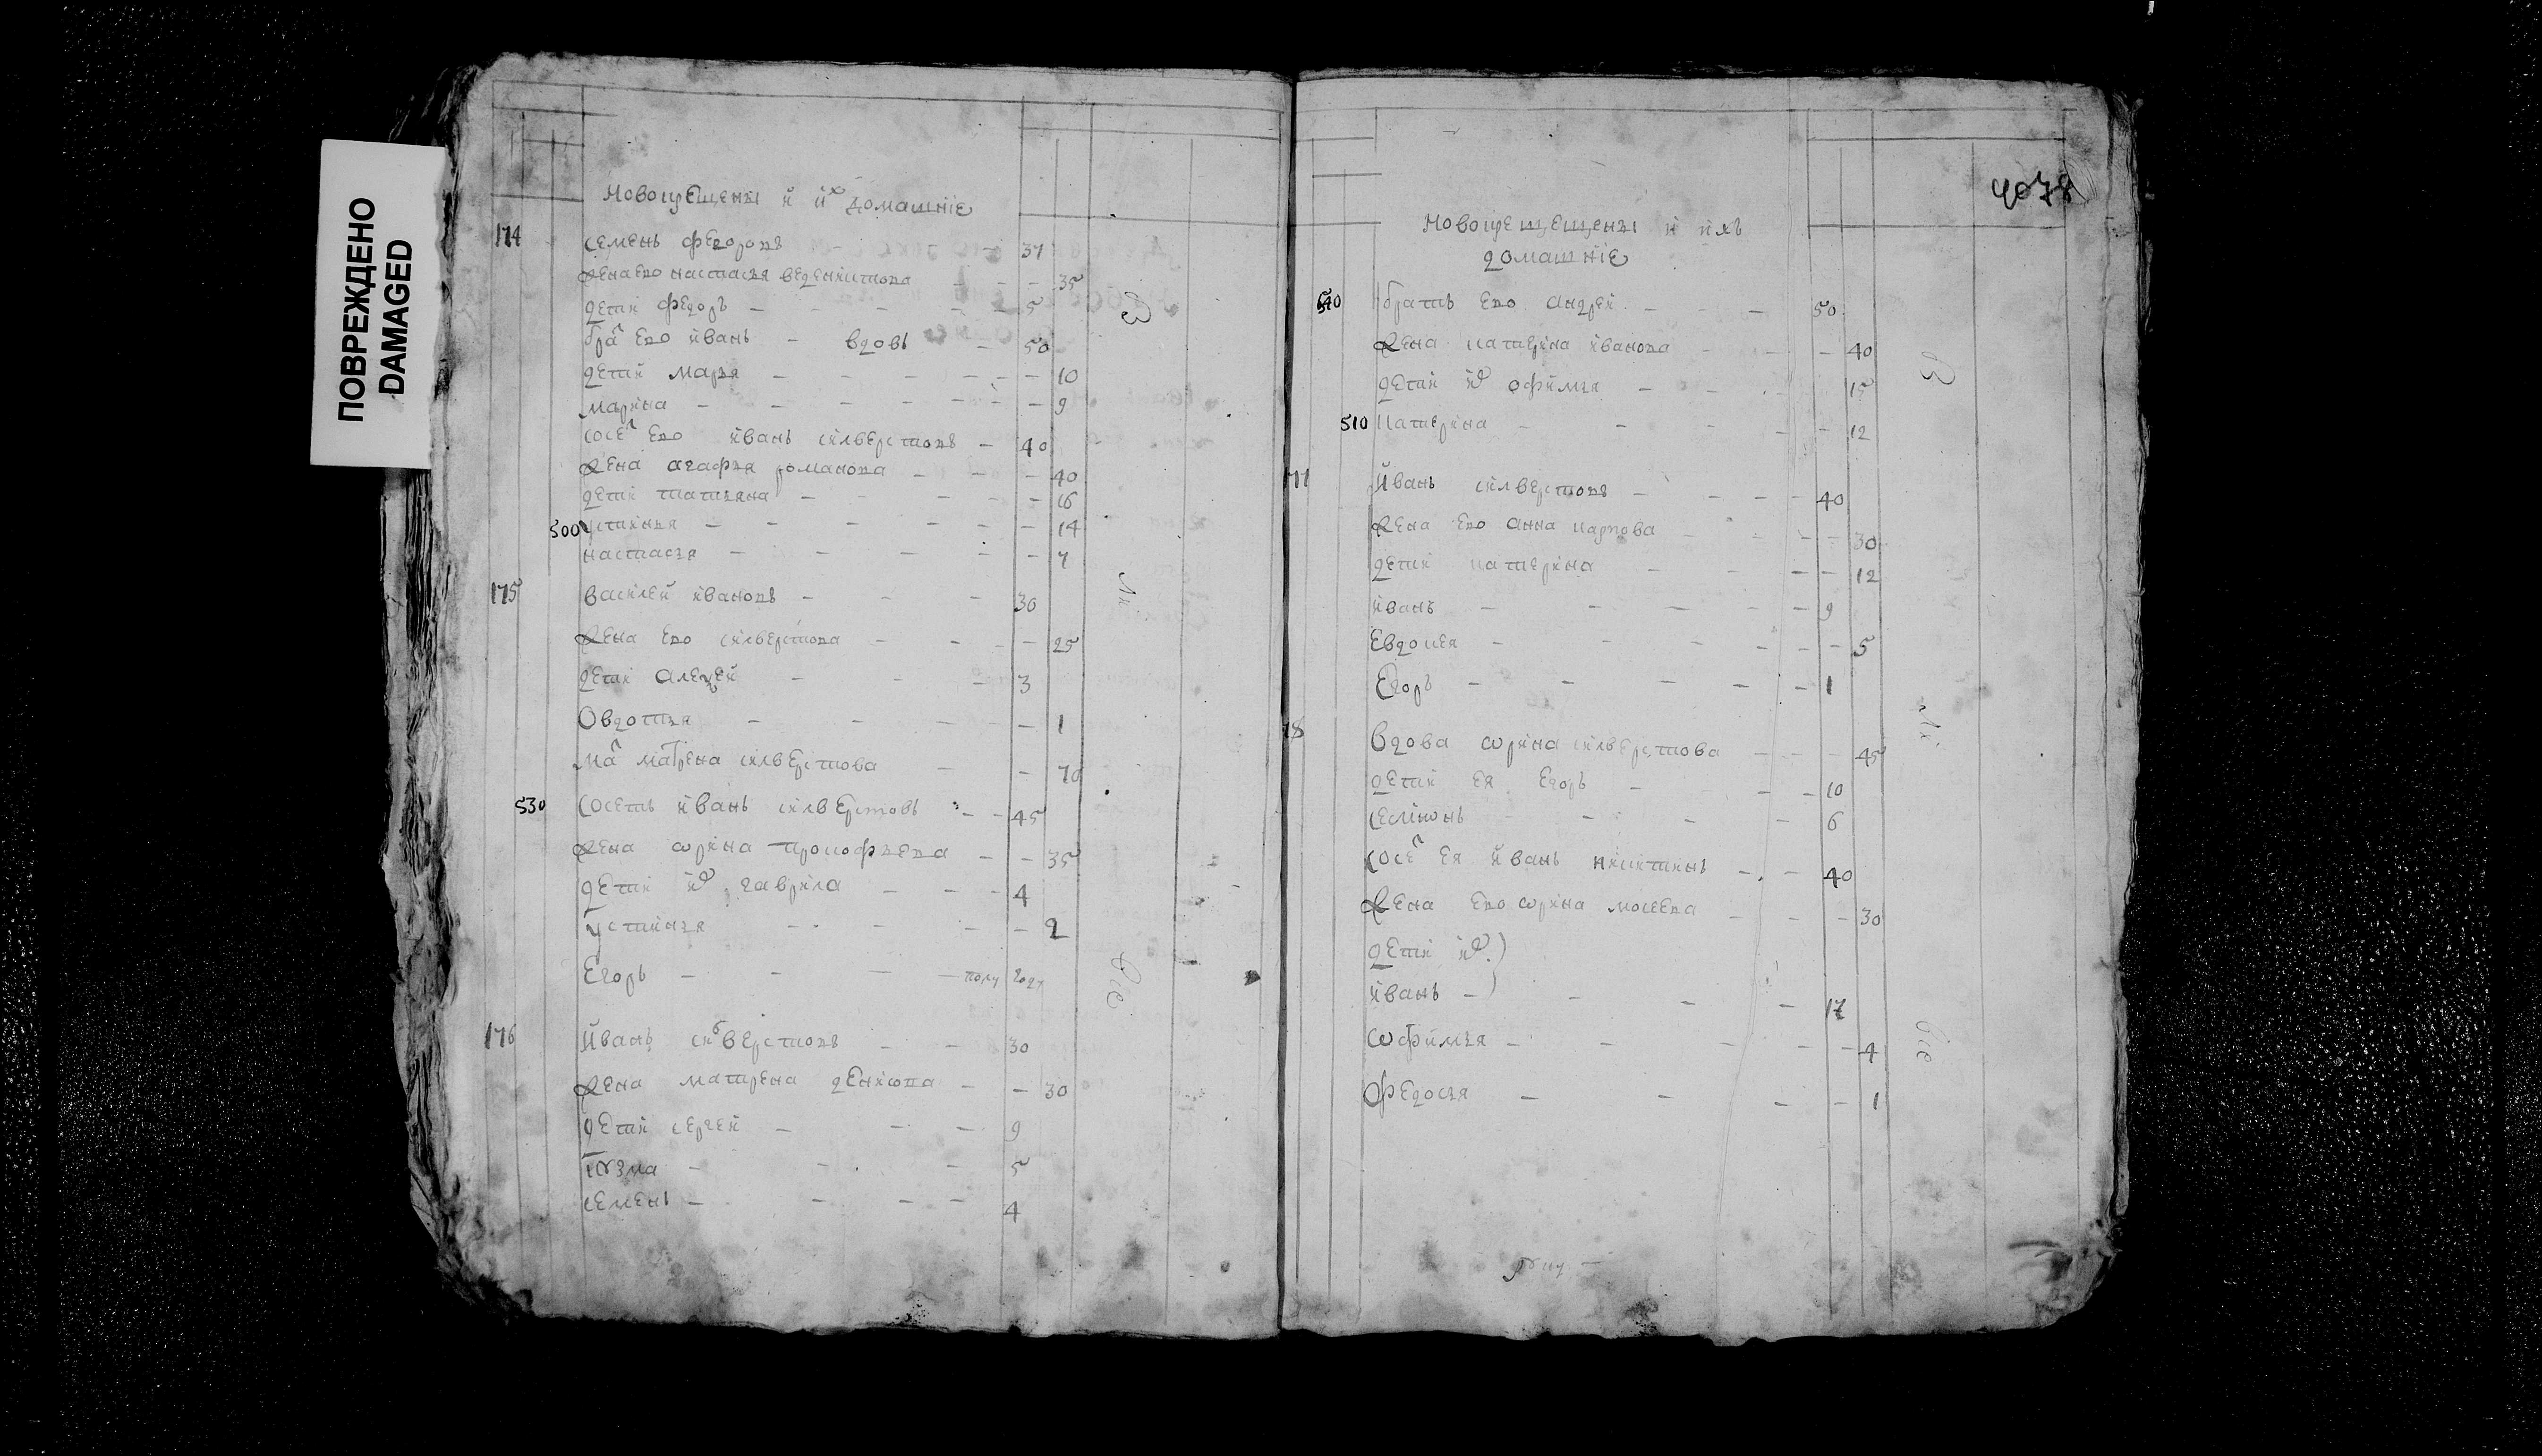 ПОВРЕЖДЕНО
DAMAGED
Новокрещены и их домашніе
174 семенъ федоровъ 37
жена ево настасья 35
дети федоръ 5
бра ево иванъ вдовъ 50
дети марья 10
марина 9
сосе ево иванъ силверстовъ 40
жена агафья романова 40
дети татьяна 16
500 устинья 14
настасья 7
175 василей ивановъ 30
жена ево силверстова 25
дети алексей 3
Овдотья 1
ма матрена силверстова 70
530 сосетъ иванъ силверстовъ 45
жена ѡрина прокофьева 35
дети их гаврила 4
устинья 2
Егоръ полу году
176 Иванъ силверстовъ 30
жена матрена 30
дети сергей 9
козма 5
семенъ 4
4078
Новокрещещены и ихъ
домашніе
540 братъ ево андрей 50
жена катерина иванова 40
дети их офимья 15
510 катерина 12
Иванъ силверстовъ 40
жена ево анна карпова 30
дети катерина 12
иванъ 9
Евдокея 5
Егоръ 1
18 Вдова ѡрина силверстова 45
дети ея Егоръ 10
семионъ 6
сосе ея иванъ никитинъ 40
жена ево ѡрина мосеева 30
дети их)
иванъ 17
ѡфимья 4
федосья 1